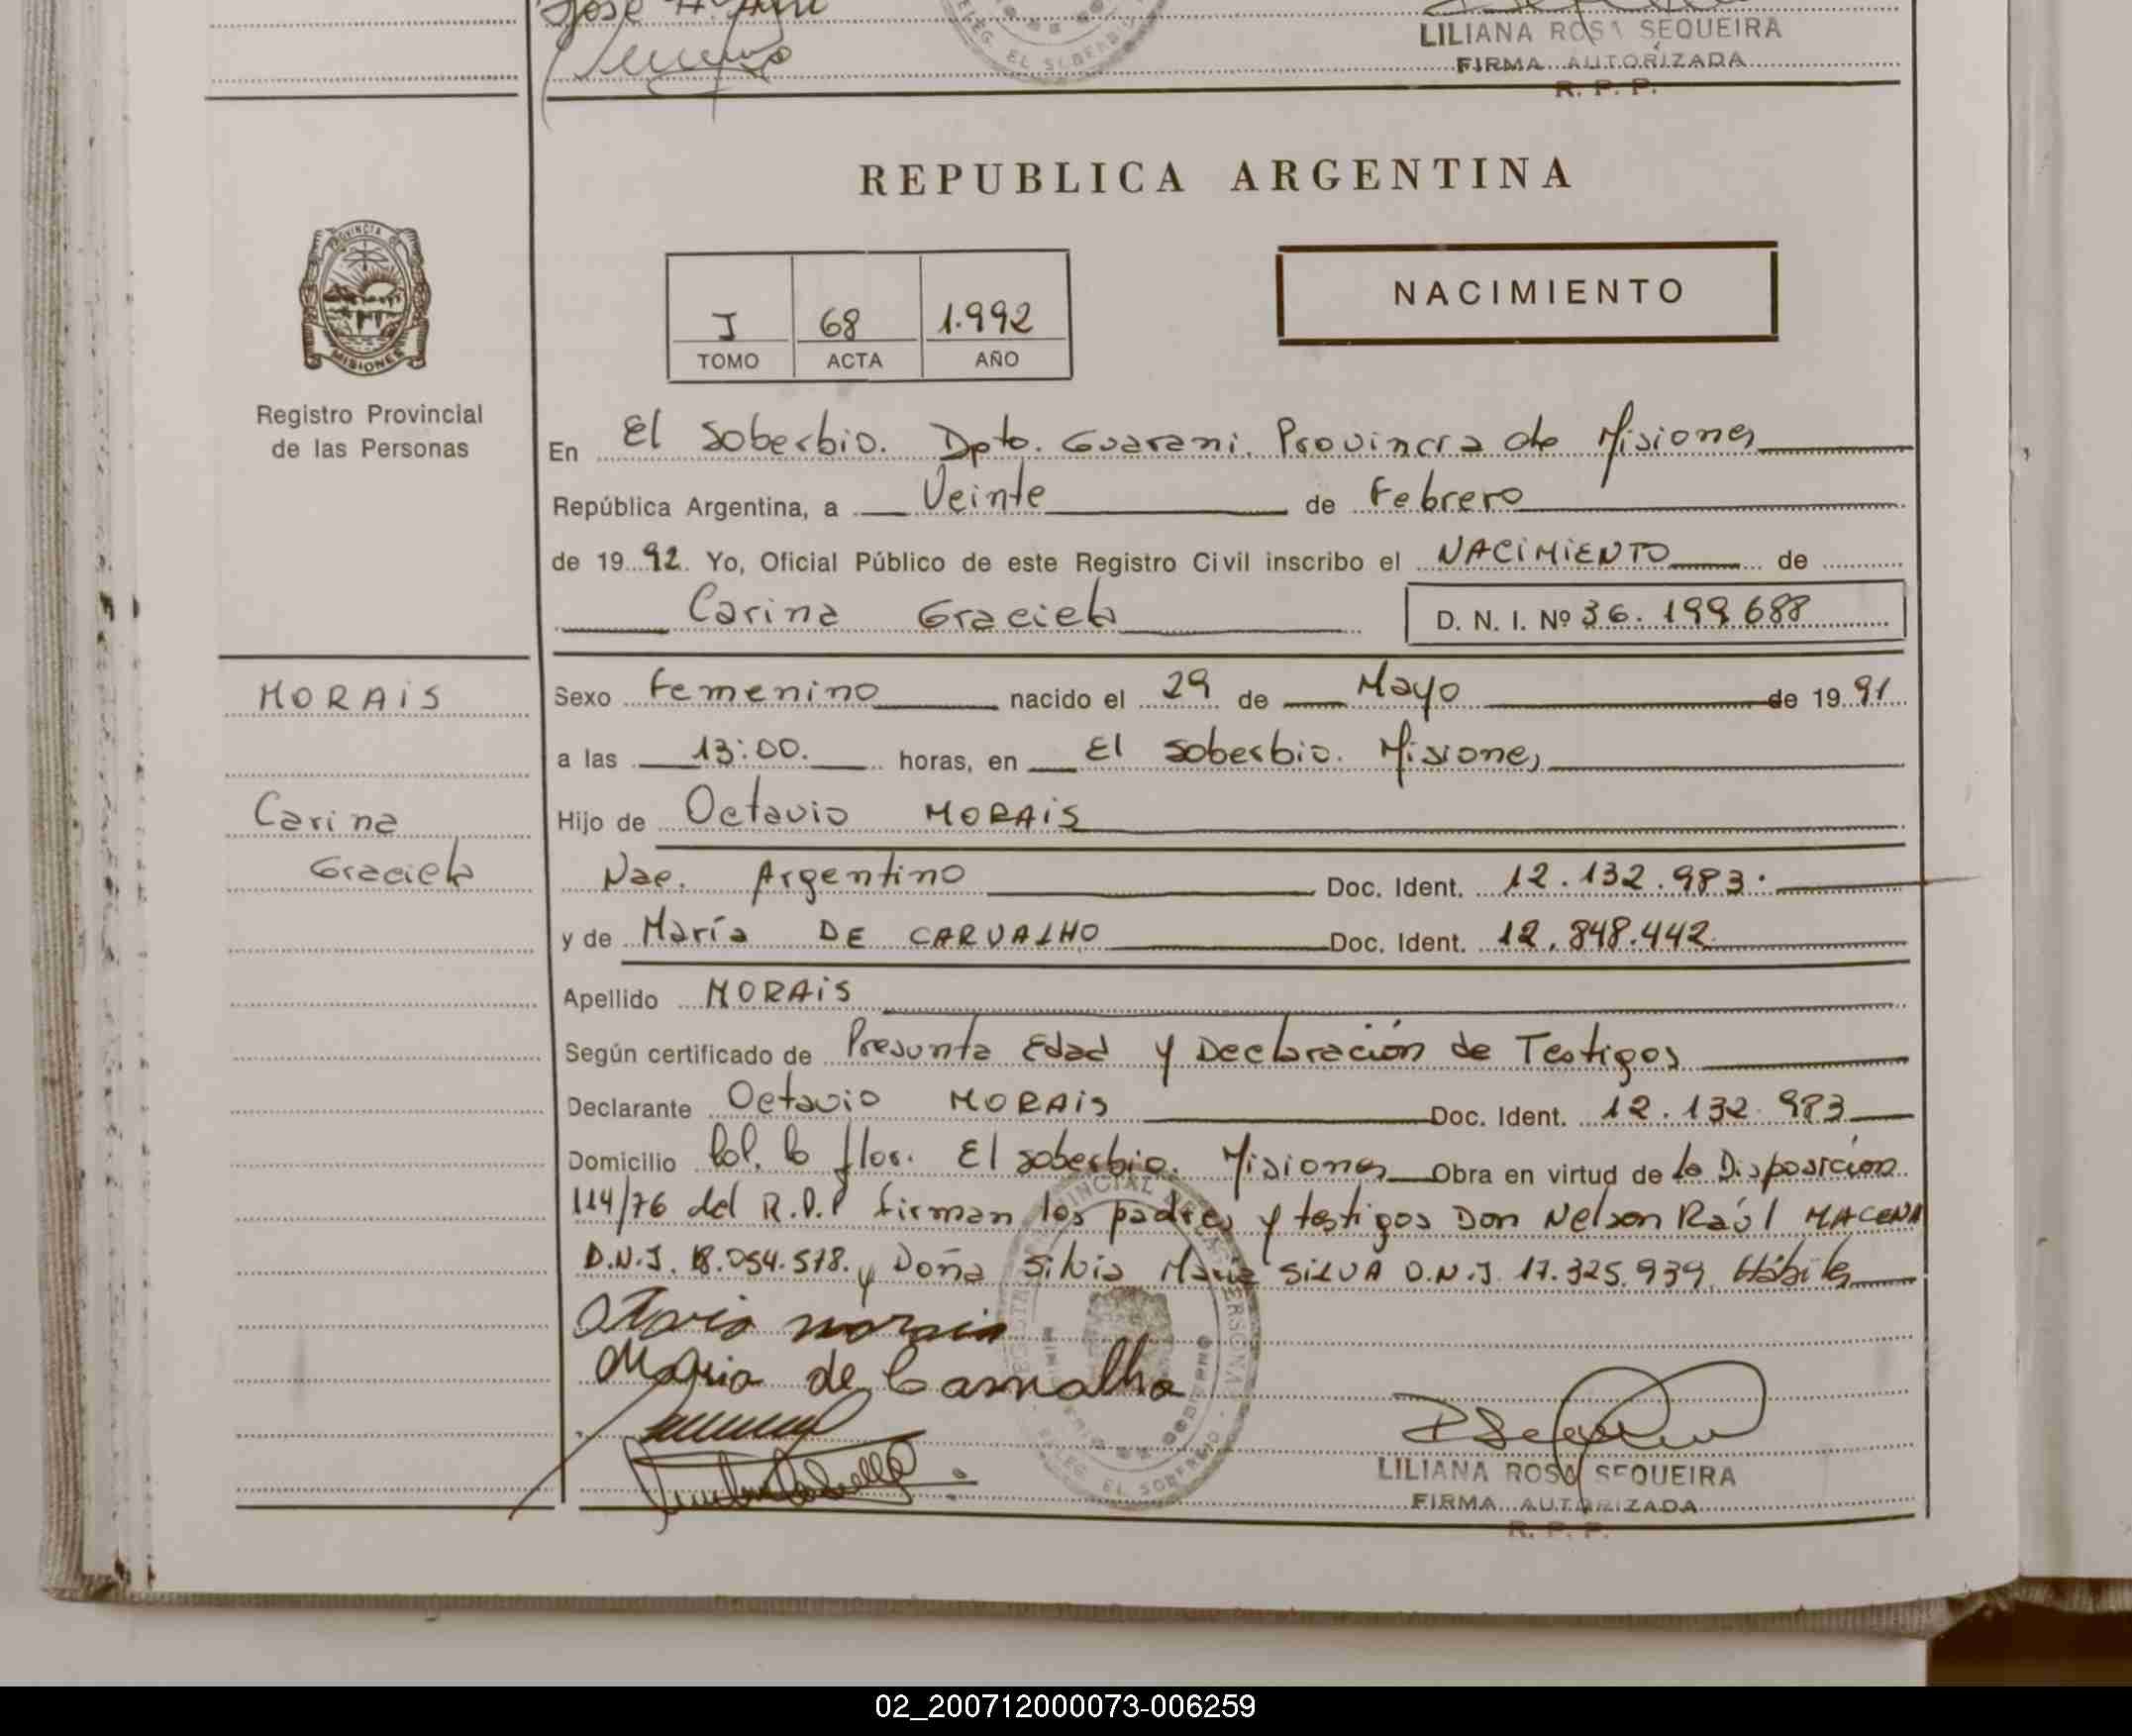 LILIANA ROSA SEQUEIRA
FIRMA AUTORIZADA
R. P. P.
REPUBLICA ARGENTINA
PROVINCIA DE
MISIONES
Registro Provincial
de las Personas
I 68 1.992
TOMO ACTA AÑO
NACIMIENTO
En El Soberbio. Dpto. Guarani. Provincia de Misiones
República Argentina, a Veinte de Febrero
de 19 92. Yo, Oficial Público de este Registro Civil inscribo el NACIMIENTO de
Carina Graciela D. N. I. Nº 36.199.688
MORAIS
Carina
Graciela
Sexo Femenino nacido el 29 de Mayo de 19 91
a las 13:00. horas, en El Soberbio. Misiones
Hijo de Octavio MORAIS
Nac. Argentino Doc. Ident. 12.132.983.
y de María DE CARVALHO Doc. Ident. 12.848.442
Apellido MORAIS
Según certificado de Presunta Edad y Declaración de Testigos
Declarante Octavio MORAIS Doc. Ident. 12.132.983
Domicilio Col. la flor. El Soberbio. Misiones Obra en virtud de la Disposición
114/76 del R.P.P firman los padres y testigos Don Nelson Raúl MACENA
D.N.I. 18.054.578. y Doña Silvia María SILVA D.N.I. 17.325.939. Hábiles
Otavio morais
Maria de Carvalho
LILIANA ROSA SEQUEIRA
FIRMA AUTORIZADA
R. P. P.
02_200712000073-006259